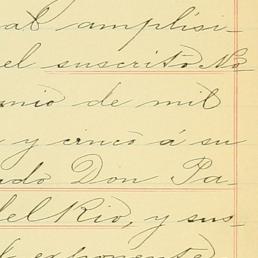 al amplísi-
el suscrito No
unio de mil
y cinco á su
ado Don Pa-
del Rio, y sus-
exponente